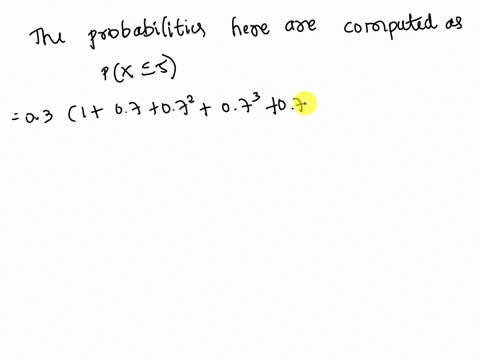 The probabilities here are computed as
P(X ≤ 5)
= 0.3 (1 + 0.7 + 0.7² + 0.7³ + 0.7